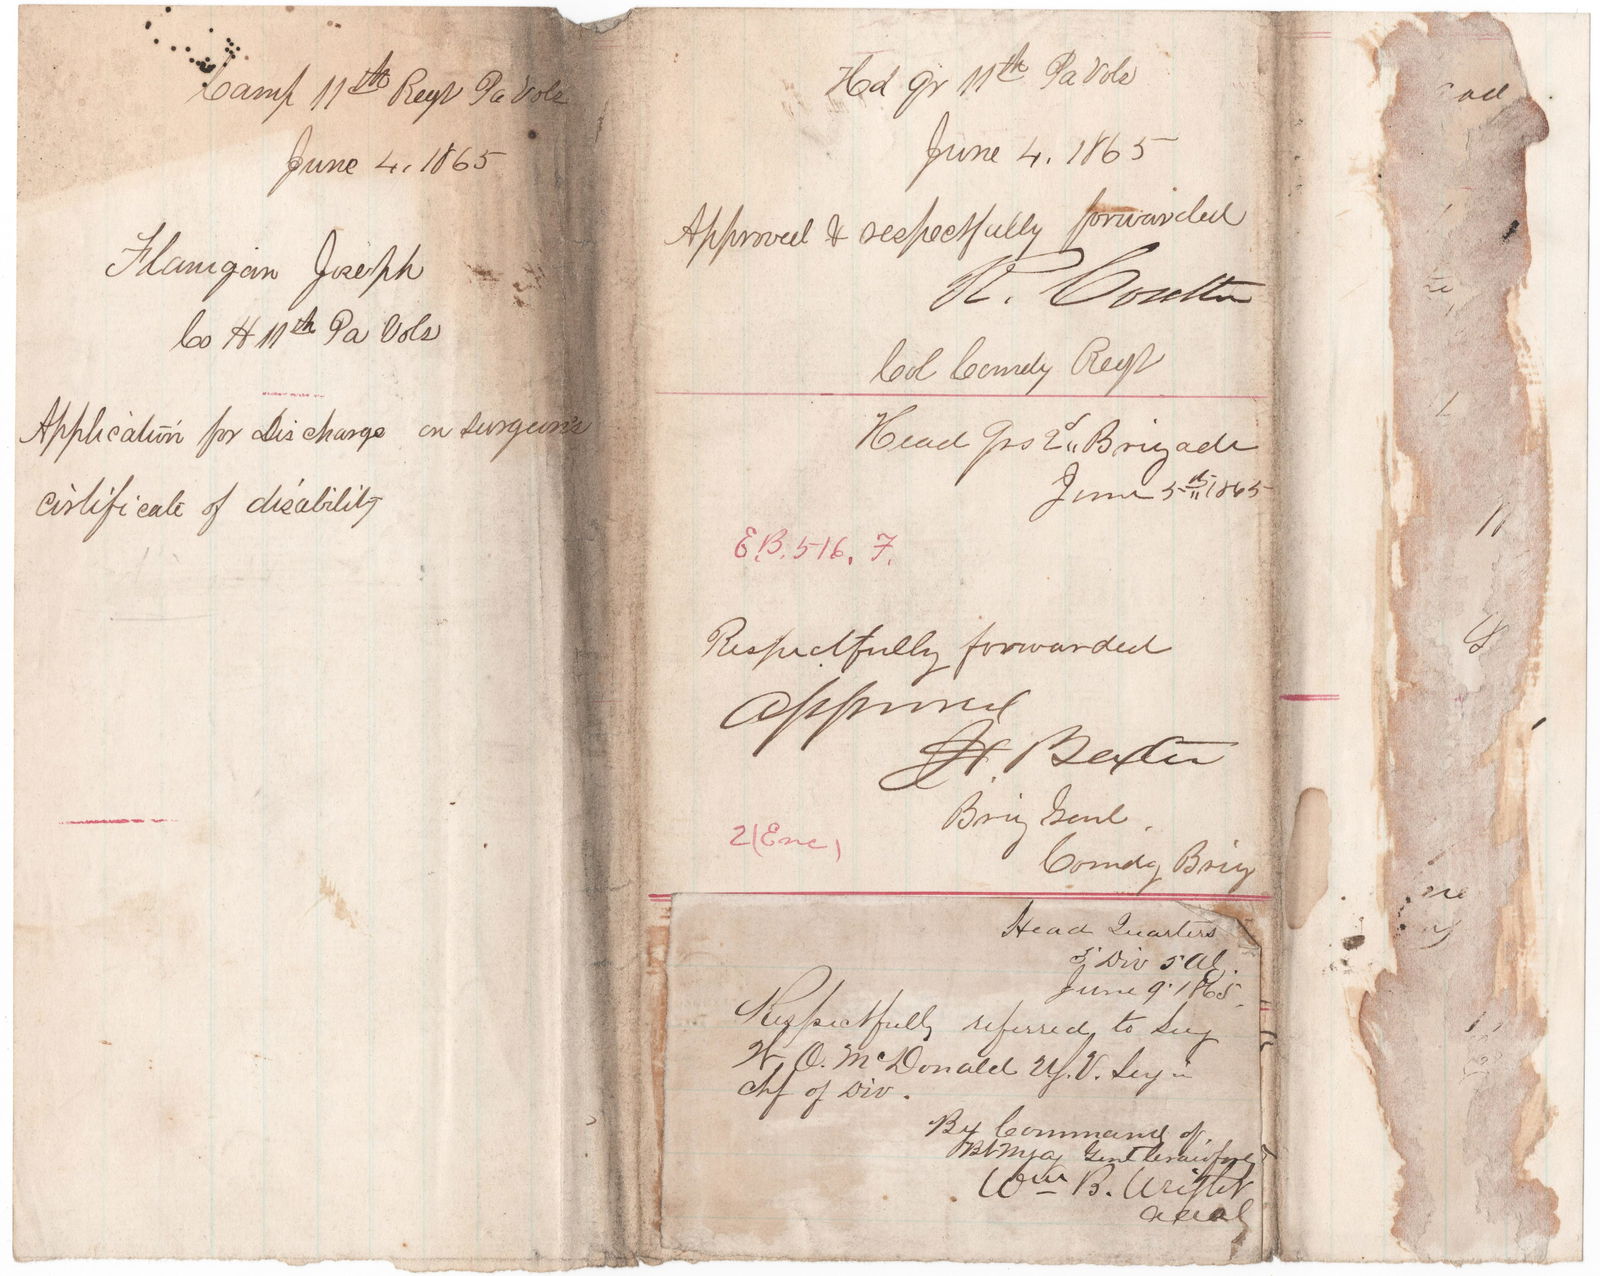 Camp 11th Regt Pa Vols
June 4, 1865
Flanigan Joseph
Co H 11th Pa Vols
Application for Discharge on surgeon's
certificate of disability
Hd Qr 11th Pa Vols
June 4. 1865
Approved & respectfully forwarded
R. Coulter
Col Comdg Regt
Head Qrs 2d Brigade
June 5th 1865
E.B. 516. F.
Respectfully forwarded
approved
H. Baxter
Brig Genl.
Comdg Brig
2 (Enc)
Head Quarters
3" Div 5 A.C.
June 9" 1865.
Respectfully referred to Surg
W. O. McDonald U.S.V. Surg in
Chf of Div.
By Command of
Bt Maj Genl Crawford
Wm B. Wright